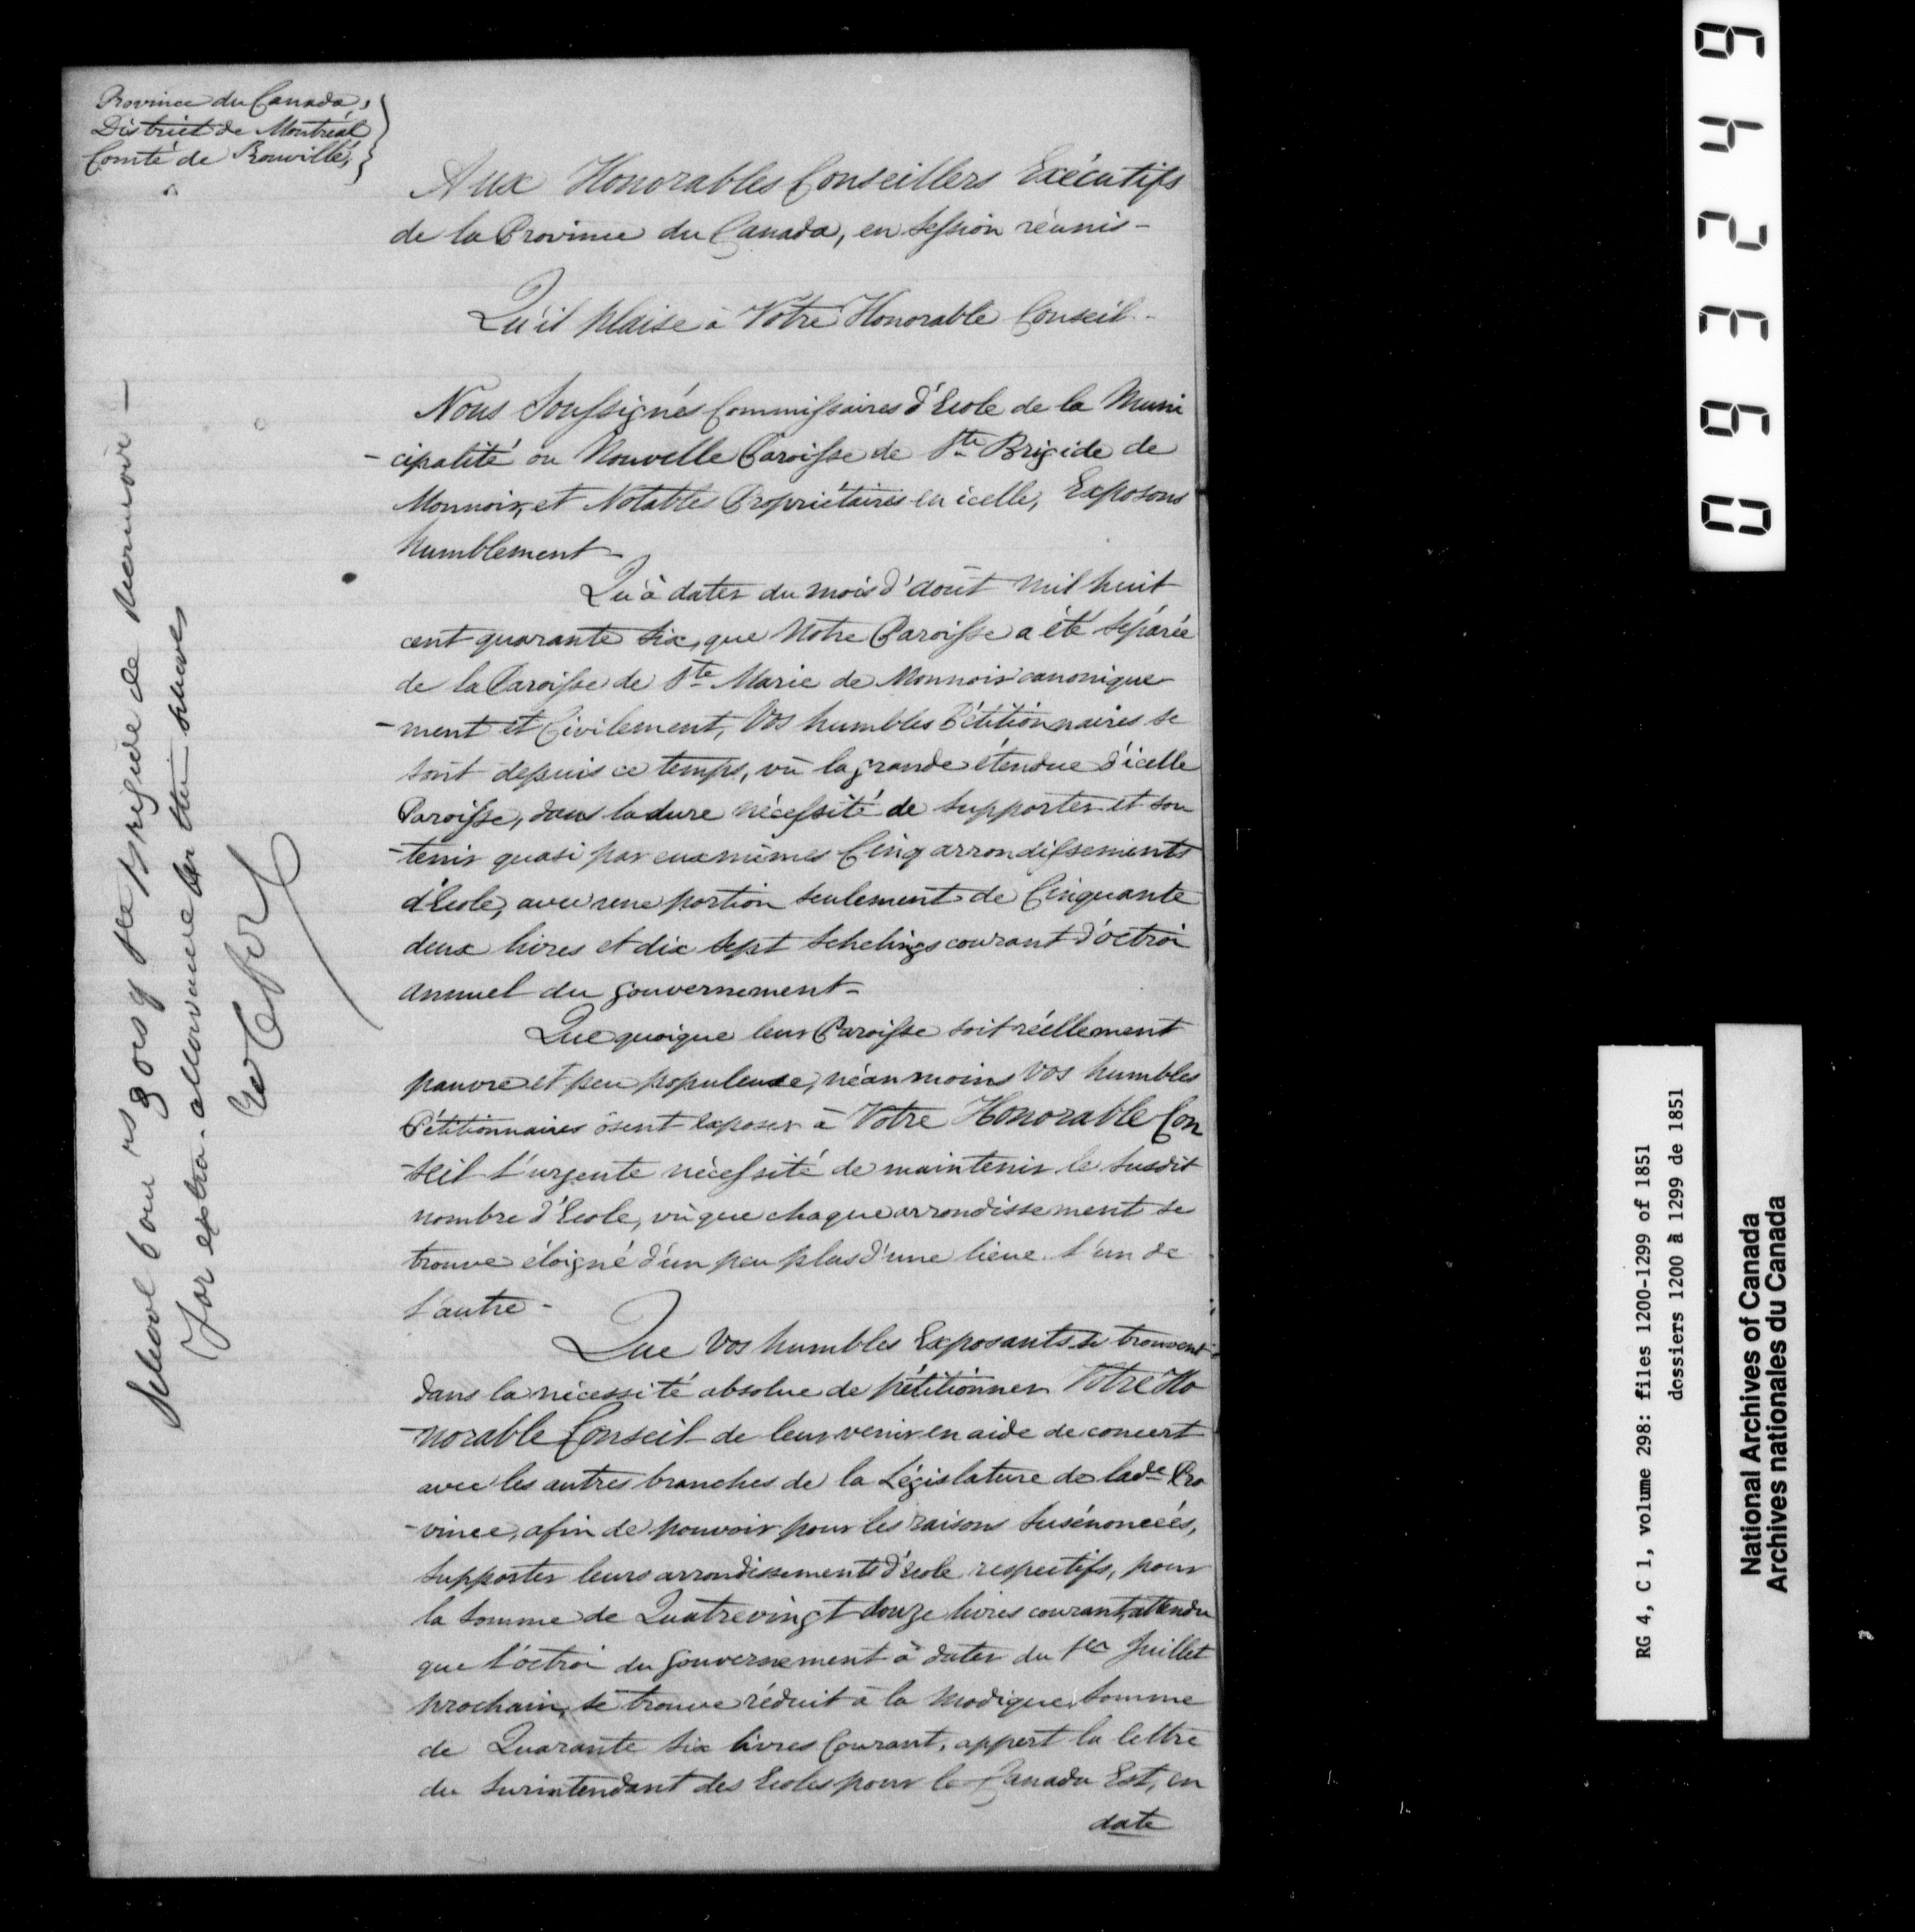 Province du Canada,
District de Montréal
Comté de Rouville,
Aux Honorables Conseillers Exécutifs
de la Province du Canada, en Session réunis -
Qu'il plaise à Votre Honorable Conseil -
Nous Soussignés Commissaires d'Ecole de la Muni
- cipalité ou Nouvelle Paroisse de Ste Brigide de
Monnoir, et Notables Propriétaires en icelle, Exposons
humblement -
Qu'à dater du mois d'août mil huit
cent quarante six, que Notre Paroisse a été séparée
de la Paroisse de Ste Marie de Monnoir canonique
- ment et Civilement, Vos humbles Pétitionnaires se
sont depuis ce temps, vû la grande étendue d'icelle
Paroisse, dans la dure nécessité de supporter et sou
- tenir quasi par eux mêmes Cinq arrondissements
d'Ecole, avec une portion seulement de Cinquante
deux livres et dix sept schelings courant d'octroi
annuel du gouvernement -
Que quoique leur Paroisse soit réellement
pauvre et peu populeuse, néanmoins Vos humbles
Pétitionnaires ôsent exposer à Votre Honorable Con
- seil l'urgente nécessité de maintenir le susdit
nombre d'Ecole, vû que chaque arrondissement se
trouve éloigné d'un peu plus d'une lieue l'un de
l'autre -
Que Vos humbles Exposants se trouvent
dans la nécessité absolue de pétitionner Votre Ho
- norable Conseil de leur venir en aide de concert
avec les autres branches de la Législature de lade Pro
- vince, afin de pouvoir pour les raisons susénoncéés,
supporter leurs arrondissements d'école respectifs, pour
la somme de Quatrevingt douze livres courant, attendu
que l'octroi du gouvernement à dater du 1er Juillet
prochain, se trouve réduit à la modique somme
de Quarante six livres Courant, appert la lettre
du Surintendant des Ecoles pour le Canada Est, en
date
School Com rs
of Ste Brigide de Monnoir -
For extra allowance for their
069342 49
RG 4, C 1, volume 298: files 1200-1299 of 1851
dossiers 1200 à 1299 de 1851
National Archives of Canada
Archives nationales du Canada